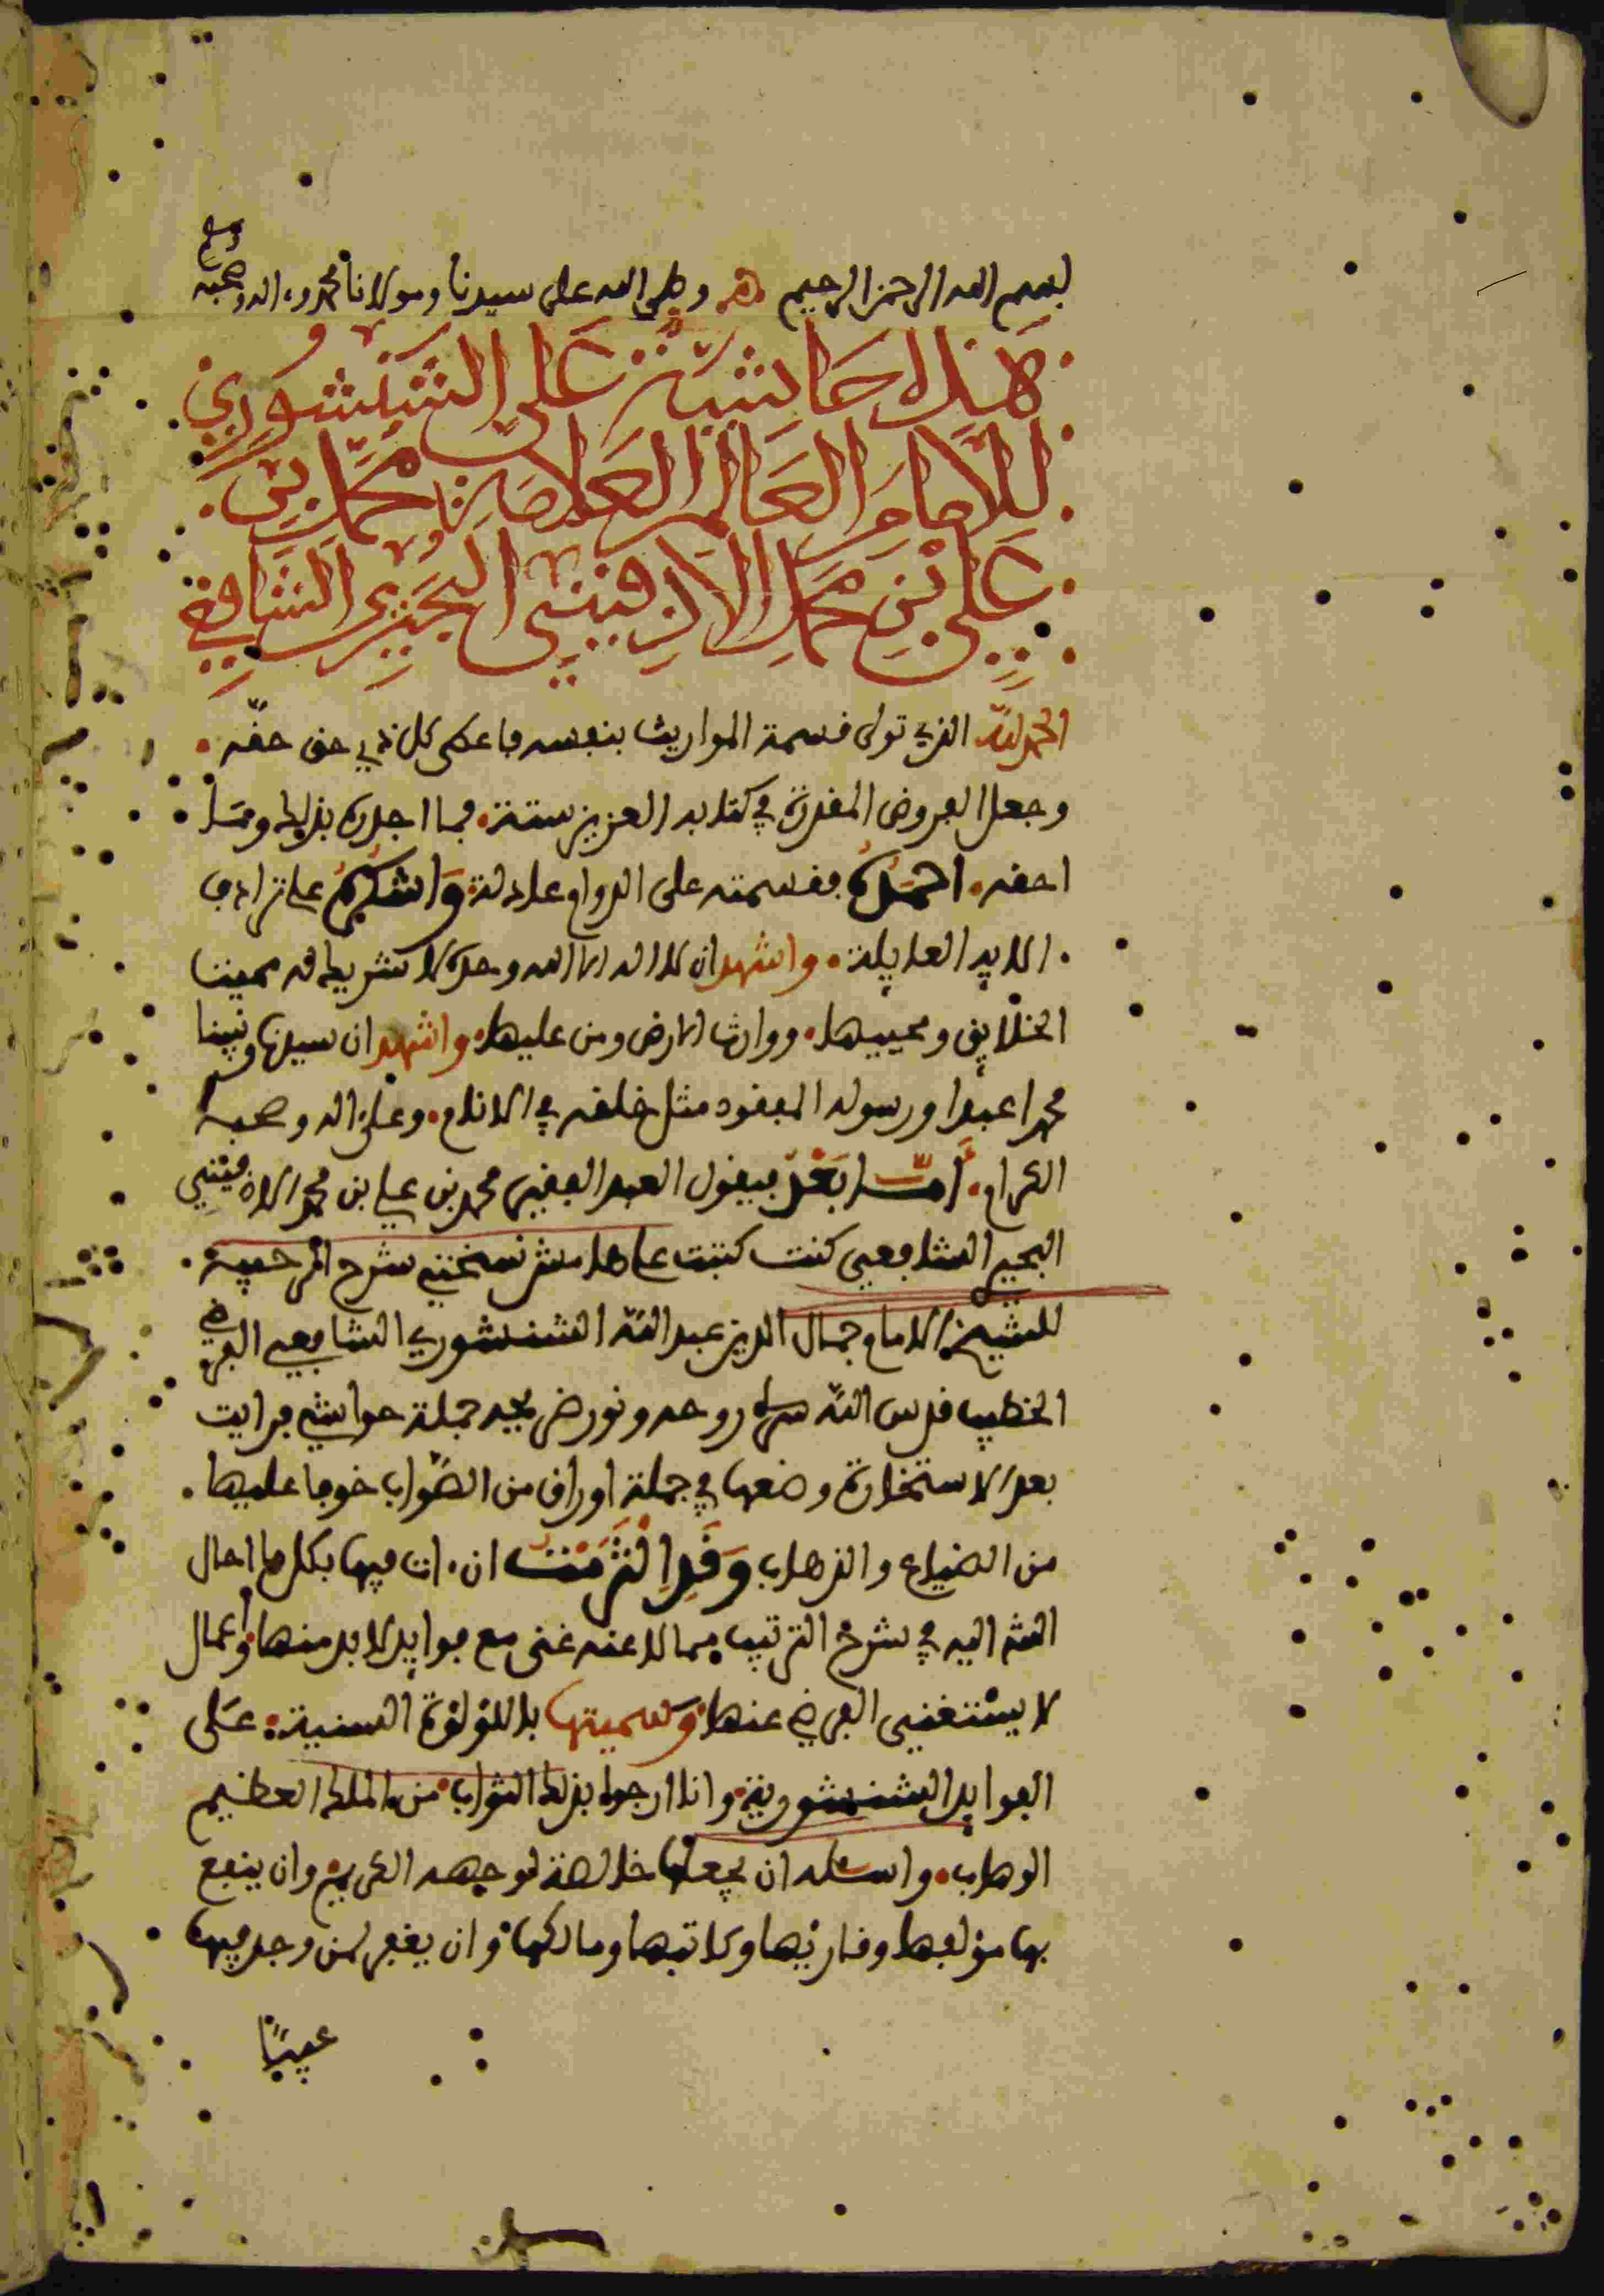 وسلم
بسم الله الرحمن الرحيم وصلى الله على سيدنا ومولانا محمد وءاله وصحبه
هذه حاشية على الشنشوري
للامام العالم العلامة محمد بن
علي بن محمد الادفيني البحيري الشافعي
الحمد لله الذي تولى قسمة المواريث بنفسه فاعطى كل ذي حق حقه
وجعل الفروض المقدرة في كتابه العزيز ستة فما اجدره بذلك وما
احقه احمده فقسمته على الدوام عادلة واشكره على ترادف
الايد العايلة واشهد ان لا اله الا الله وحده لا شريك له مميت
الخلايق ومحييها ووارث الارض ومن عليها واشهد ان سيدنا ونبينا
محمدا عبده ورسوله المفقود مثل خلقه في الانام وعلى اله وصحبه
الكرام اما بعد فيقول العبد الفقير محمد بن علي بن محمد الادفيني
البحيري الشافعي كنت كتبت على هامش نسختي شرح الرحبية
للشيخ الامام جمال الدين عبد الله الشنشوري الشافعي الفرضي
الخطيب قدس الله سره روحه ونور ضريحه جملة حواشي فرايت
بعد الاستخارة وضعها في جملة اوراق من الصواب خوفا عليها
من الضياع والذهاب وقد التزمت ان ءات فيها بكل ما احال
الله اليه في شرح الترتيب مما لا عنه غنى مع فوايد لا بد منها واعمال
لا يستغني الفرضي عنها وسميتها باللؤلؤة السنية على
الفوايد الشنشورية وانا ارجوا بذلك الثواب من الملك العظيم
الوهاب واسئله ان يجعلها خالصة لوجهه الكريم وان ينفع
بها مؤلفها وقارئها وكاتبها ومالكها وان يغفر لمن وجد فيها
عيبا